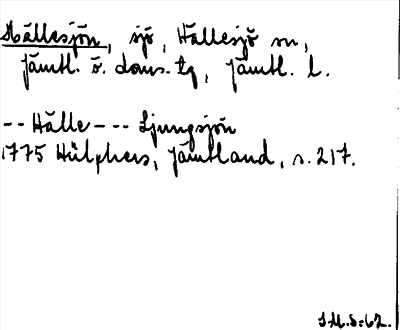 Hällesjön, sjö, Hällesjö sn,
Jämtl. ö. doms. tg, Jämtl. l.
-- Hälle --- Ljungsjön
1775 Hülphers, Jämtland, s. 217.
J.M.S:62.